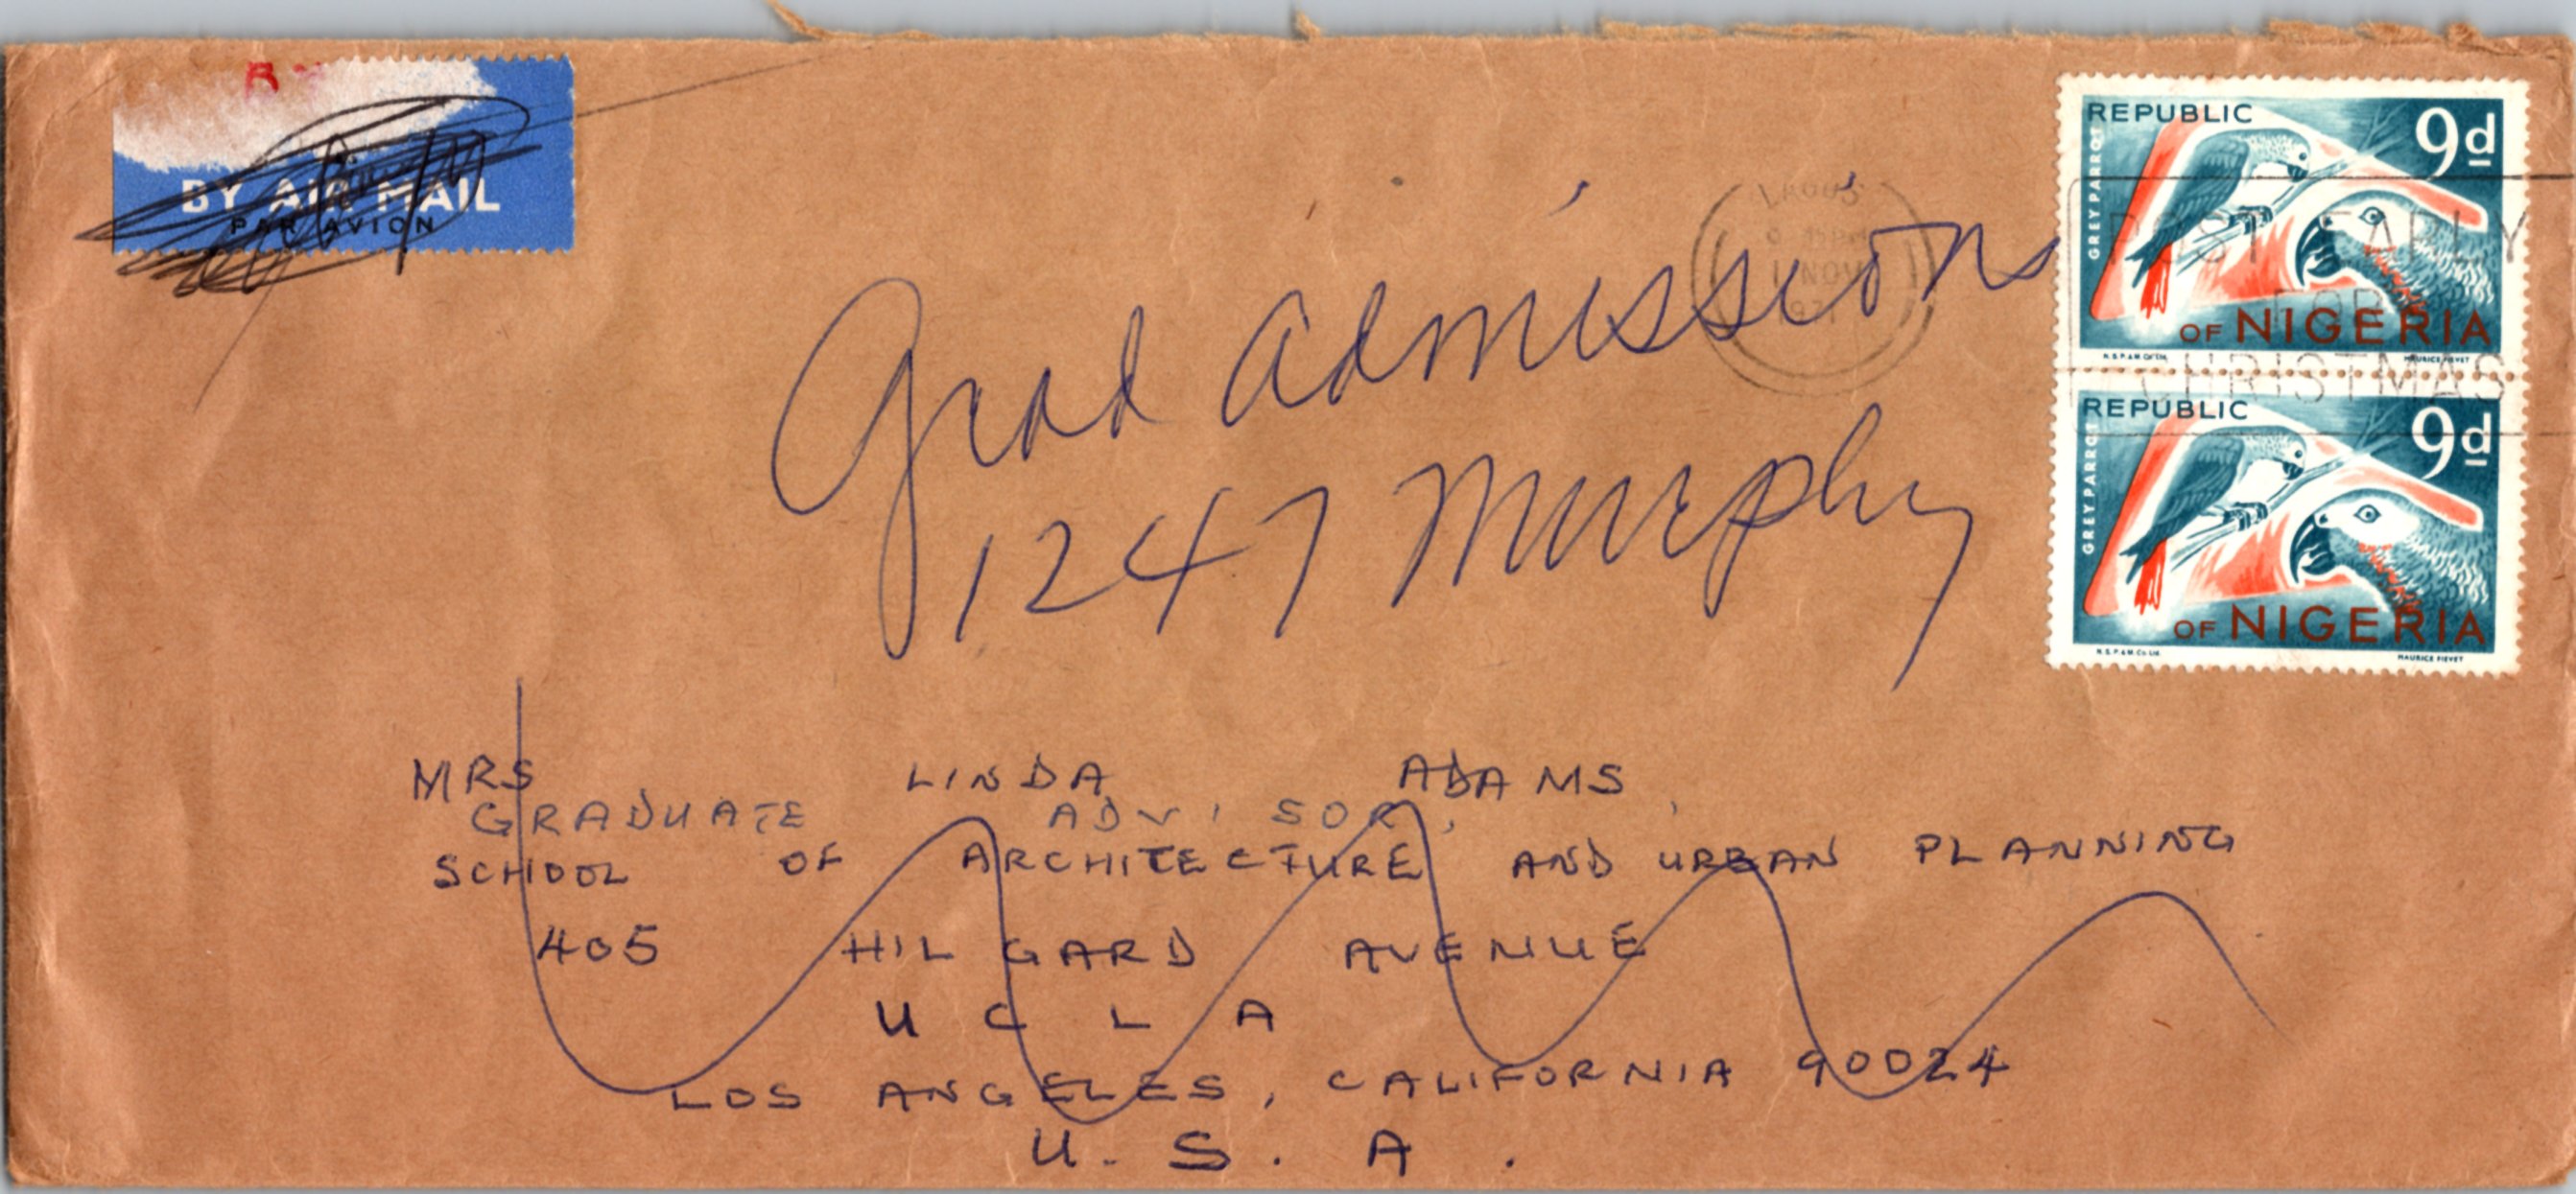 BY AIR MAIL
PAR AVION
REPUBLIC
9d
GREY PARROT
OF NIGERIA
N.S.P. & M. Co. Ltd.
MAURICE FIEVET
LAGOS
1 NOV
POST EARLY
FOR
CHRISTMAS
REPUBLIC
9d
GREY PARROT
OF NIGERIA
N.S.P. & M. Co. Ltd.
MAURICE FIEVET
Grad Admissions
1247 Murphy
MRS LINDA ADAMS,
GRADUATE ADVISOR,
SCHOOL OF ARCHITECTURE AND URBAN PLANNING
405 HILGARD AVENUE
U C L A
LOS ANGELES, CALIFORNIA 90024
U. S. A.